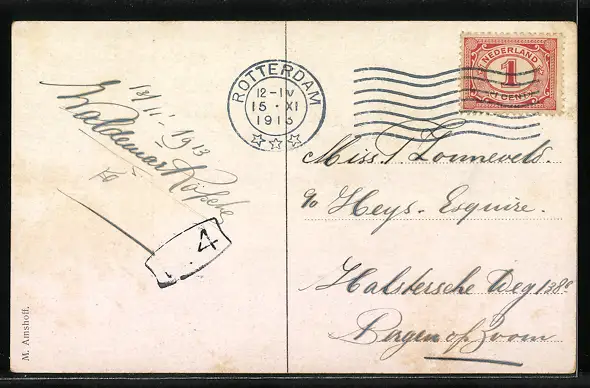 13/11-1913
Waldemar Röpcke
4
M. Amshoff.
ROTTERDAM
12-IV
15 · XI
1913
NEDERLAND
1
CENT
Miss T. Lonneveld.
% Heys. Esquire.
Halstersche Weg 138
Bergen op Zoom